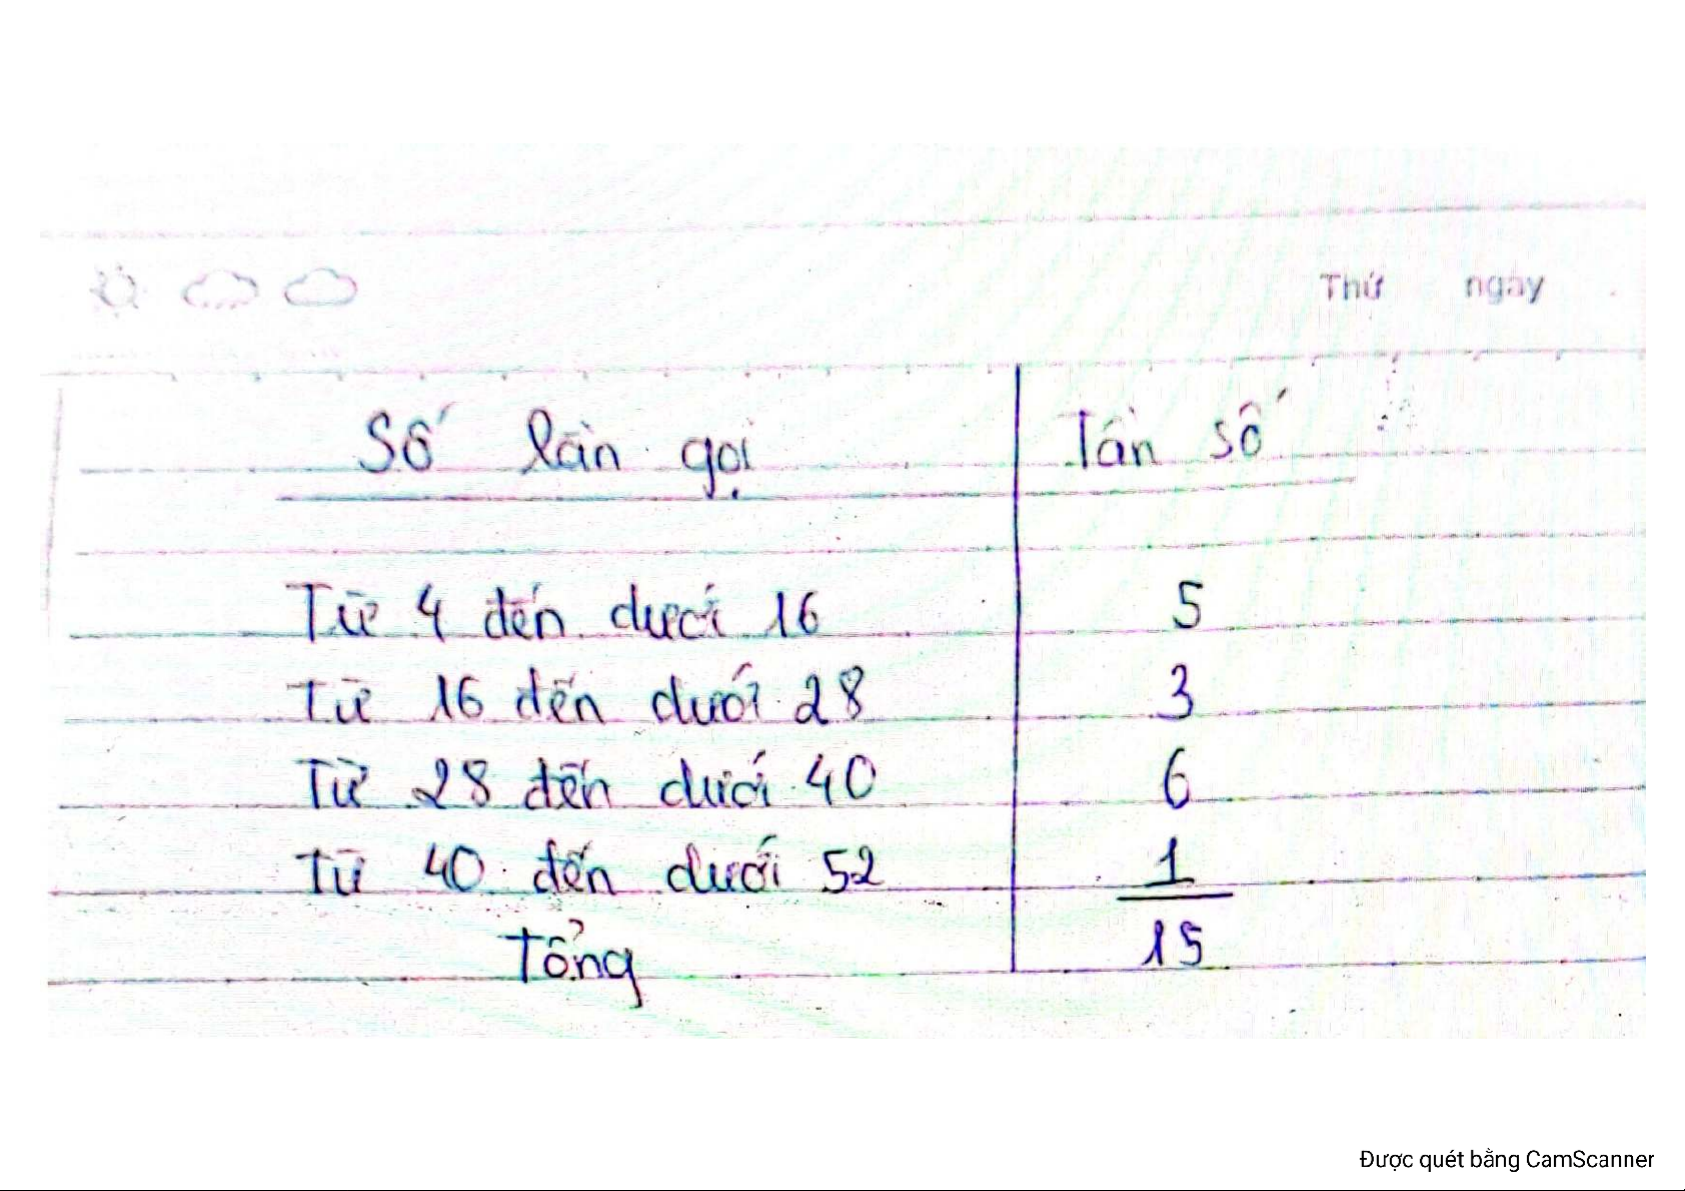 Thứ ngày
Số lần gọi Tần số
Từ 4 đến dưới 16 5
Từ 16 đến dưới 28 3
Từ 28 đến dưới 40 6
Từ 40 đến dưới 52 1
Tổng 15
Được quét bằng CamScanner